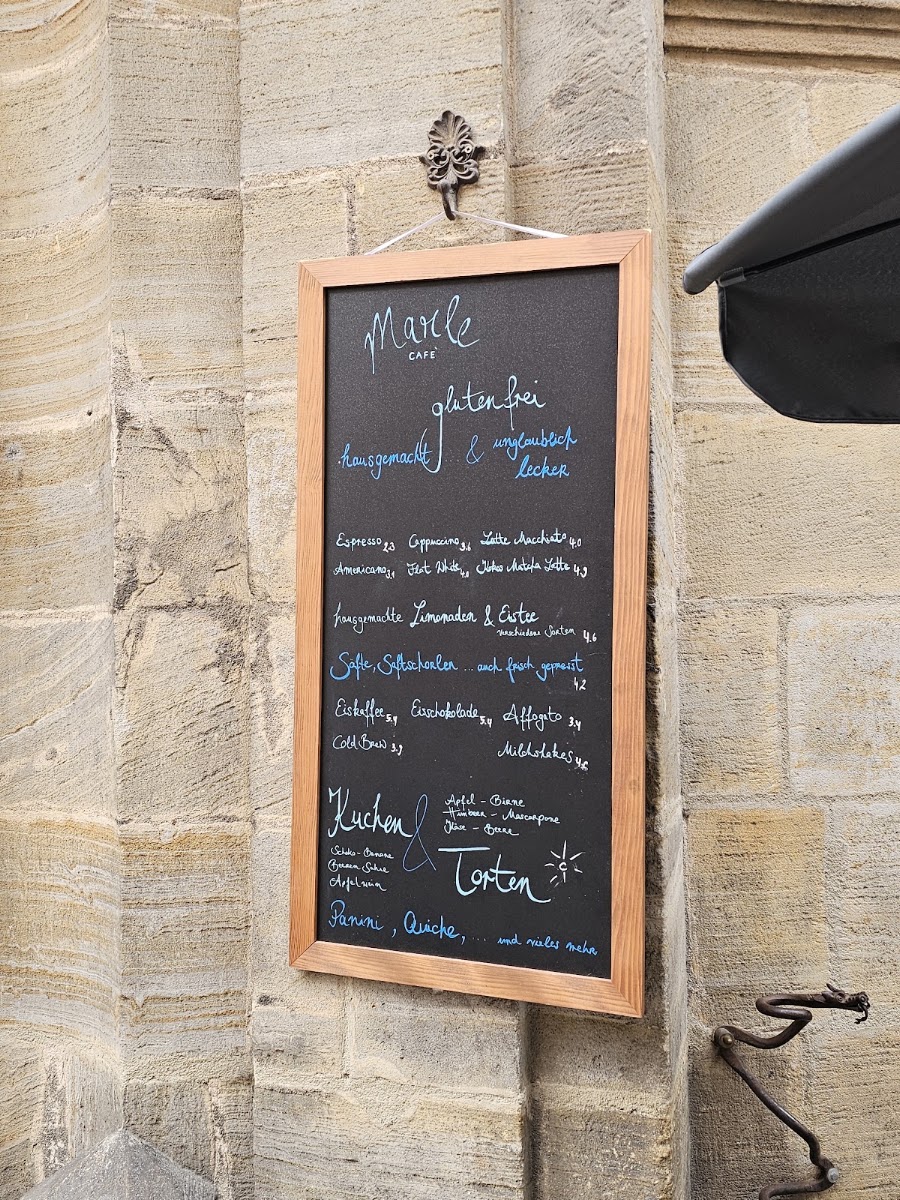 Marle
CAFÉ
glutenfrei
hausgemacht & unglaublich
lecker
Espresso 2.3 Cappuccino 3.6 Latte Macchiato 4.0
Americano 3.1 Flat White 4.0 Kokos Matcha Latte 4.9
hausgemachte Limonaden & Eistee
verschiedene Sorten 4.6
Säfte, Saftschorlen ... auch frisch gepresst
4.2
Eiskaffee 5.4 Eisschokolade 5.4 Affogato 3.4
Cold Brew 3.9 Milchshakes
Kuchen & Torten
Apfel - Birne
Himbeer - Mascarpone
Käse - Beere
Schoko - Banane
Beeren Sahne
Apfelwein
Panini, Quiche, ... und vieles mehr